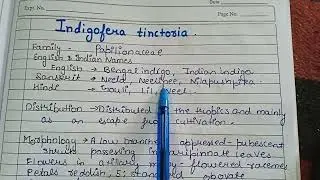 Expt. No.
Date
Page No.
Indigofera tinctoria.
Family - Papilionaceae
English & Indian Names
English → Bengal indigo, Indian indigo
Sanskrit → Neela, Neelinee, Nilapushpika
Hindi → Gouli, Lil, Neel.
Distribution → Distributed in the tropics and mainly
as an escape from cultivation.
Morphology → A low branched appressed-pubescent
shrub possessing imparipinnate leaves
Flowers in axillary many-flowered racemes
Petals reddish, 5; standard obovate